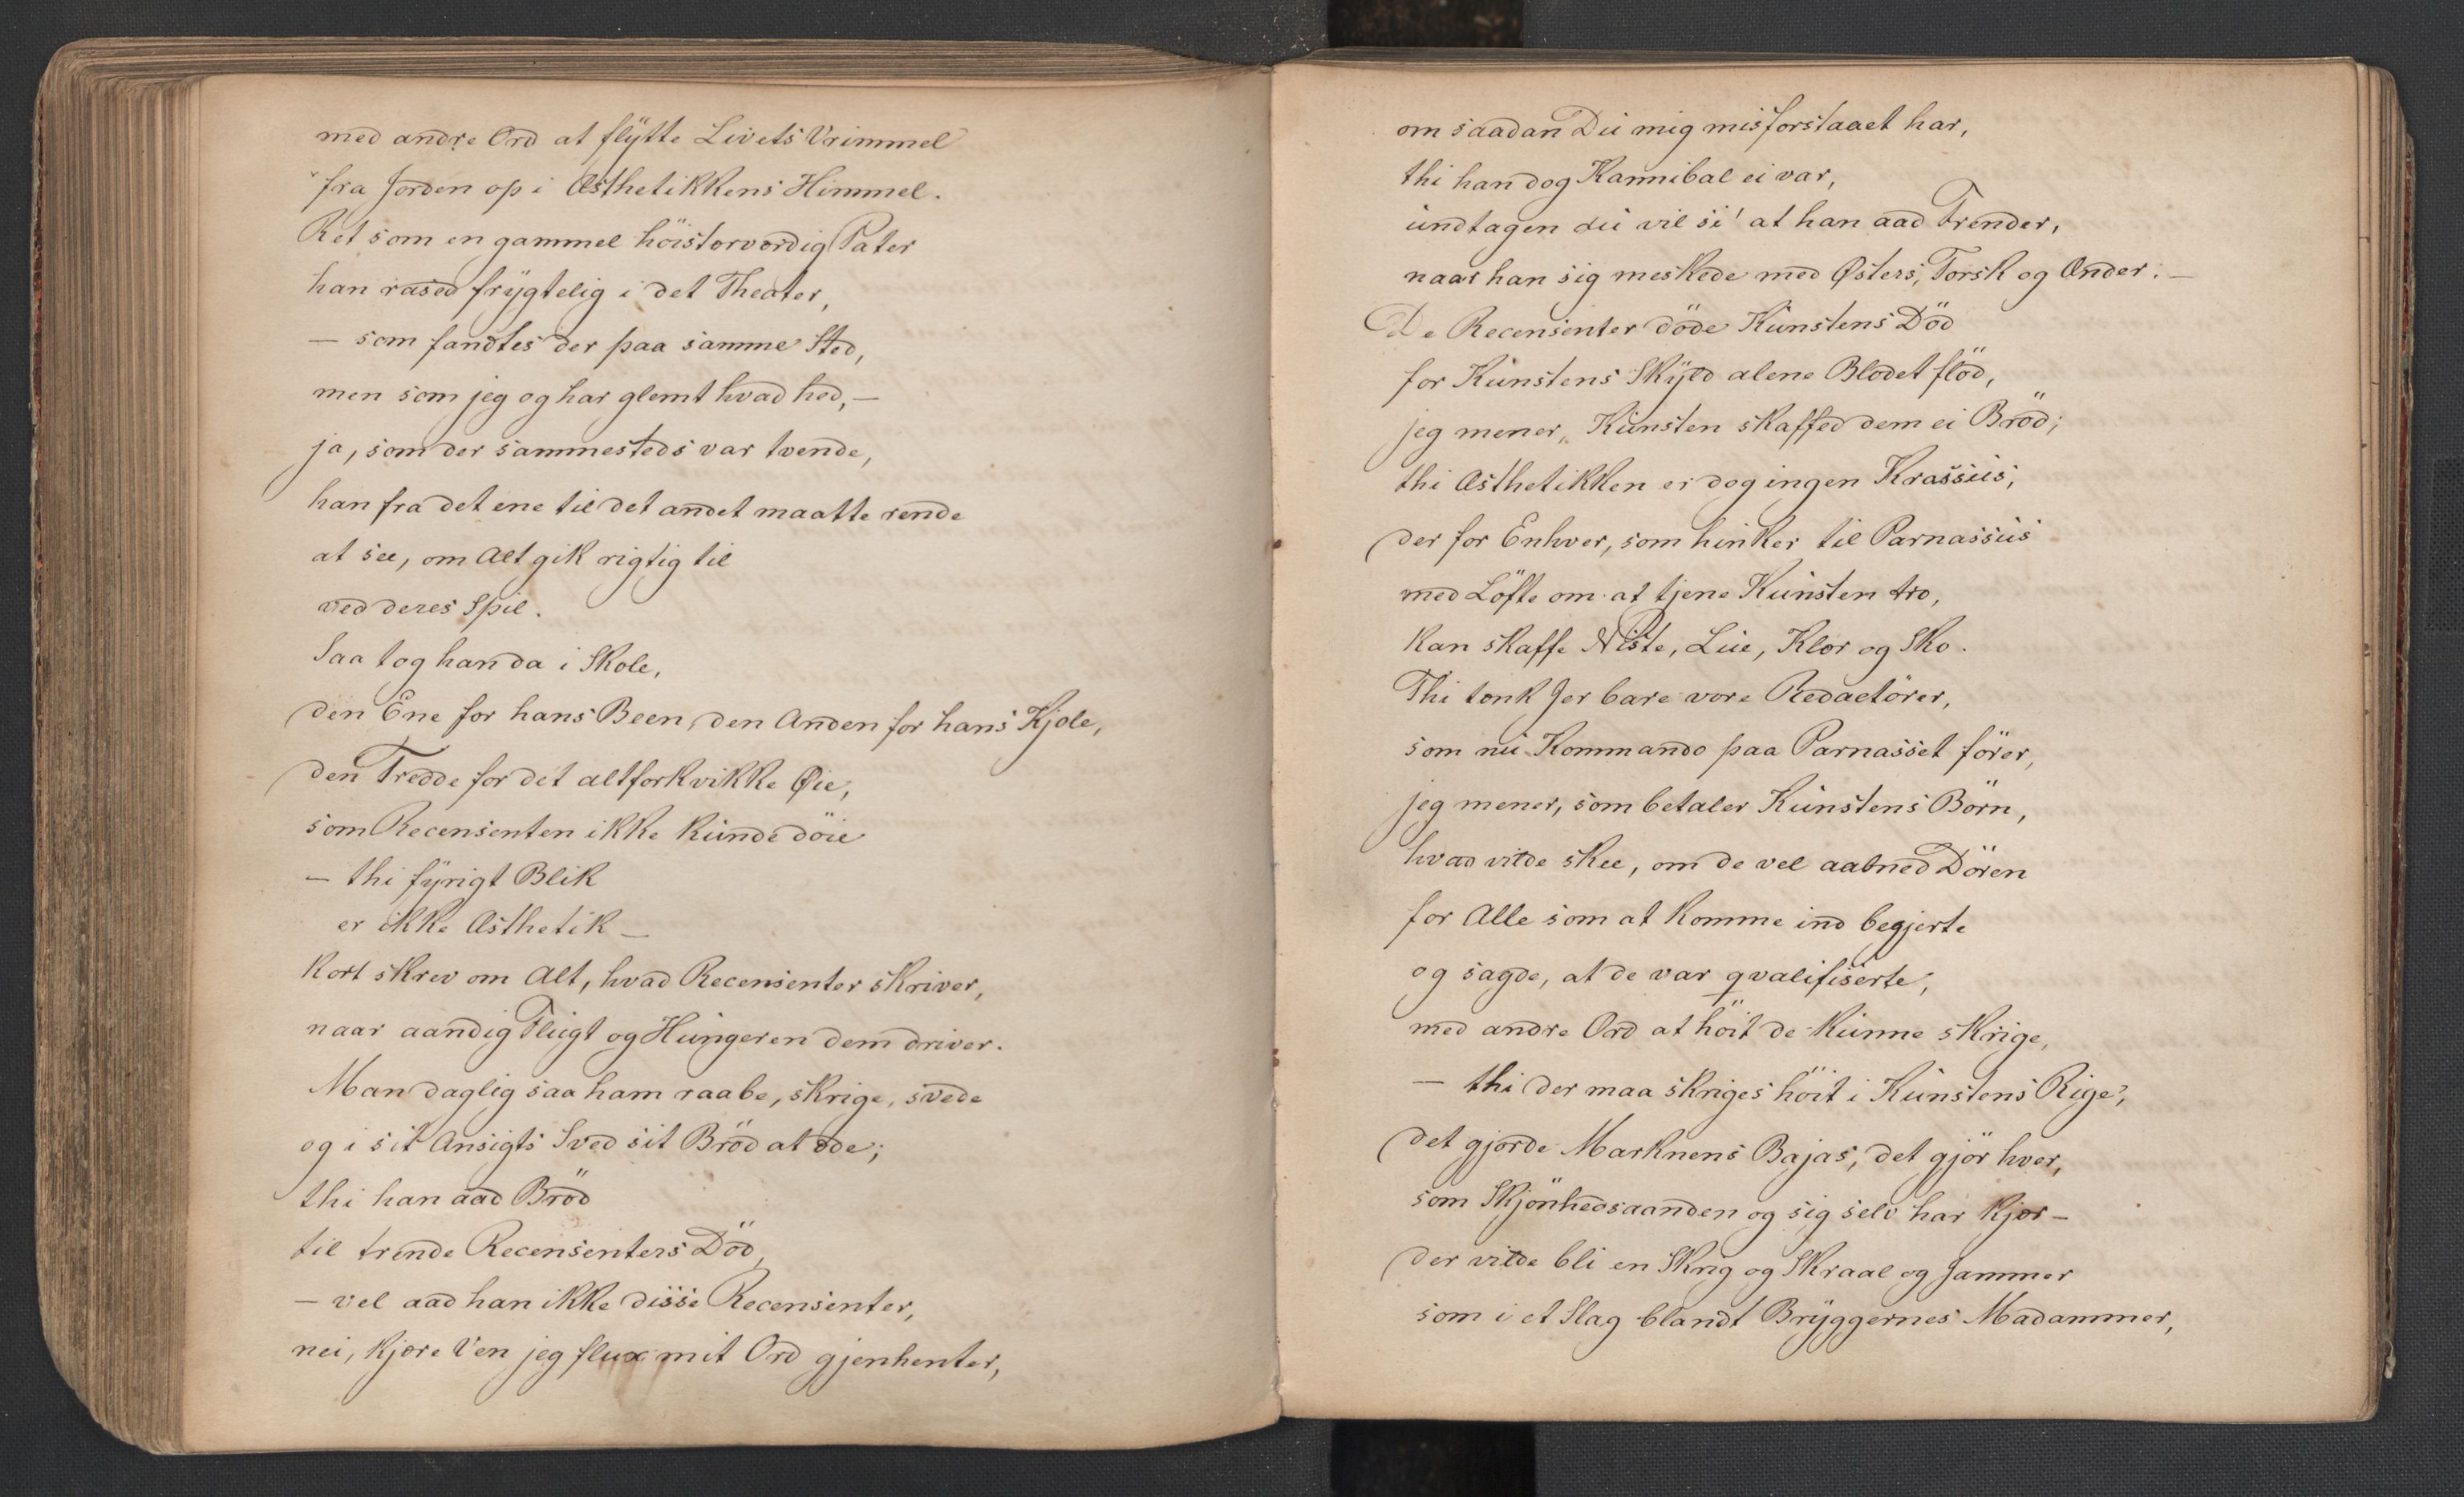 med andre Ord at flytte Livets Vrimmel
fra Jorden op i Æsthetikkens Himmel.
Ret som en gammel höistærværdig Pater
han rased frygtelig i det Theater,
— som fandtes der paa samme Sted,
men som jeg og har glemt hvad hed, —
ja, som der sammesteds var tvende,
han fra det ene til det andet maatte rende
at see, om Alt gik rigtig til
ved deres Spil.
Saa tog han da i Skole,
den Ene for hans Been, den Anden for hans Kjole,
den Tredde for det altforkvikke Øie,
som Recensenten ikke kunde döie
— thi fyrigt Blik
er ikke Æsthetik —
kort skrev om Alt, hvad Recensenter skriver,
naar aandig Flugt og Hungeren dem driver.
Man daglig saa ham raabe, skrige, svede
og i sit Ansigts Sved sit Bröd at æde;
thi han aad Bröd
til trende Recensenters Död,
— vel aad han ikke disse Recensenter,
nei, kjære Ven jeg flux mit Ord gjenhenter,
om saadan Du mig misforstaaet har,
thi han dog Kannibal ei var,
undtagen du vil si' at han aad Frender,
naar han sig meskede med Østers, Torsk og Ænder. —
De Recensenter döde Kunstens Död
for Kunstens Skyld alene Blodet flöd,
jeg mener, Kunsten skaffed dem ei Bröd;
thi Æsthetikken er dog ingen Krassus,
der for Enhver, som hinker til Parnassus
med Löfte om at tjene Kunsten tro,
kan skaffe Niste, Lue, Klær og Sko.
Thi tænk Jer bare vore Redactörer,
som nu Kommando paa Parnasset förer,
jeg mener, som betaler Kunstens Börn,
hvad vilde skee, om de vel aabned Dören
for Alle som at komme ind begjerte
og sagde, at de var qvalifiserte,
med andre Ord at höit de kunne skrige,
— thi der maa skriges höit i Kunstens Rige,
det gjorde Marknens Bajas, det gjör hver,
som Skjönhedsaanden og sig selv har kjær —
der vilde bli en Skrig og Skraal og Jammer
som i et Slag blandt Bryggernes Madammer,